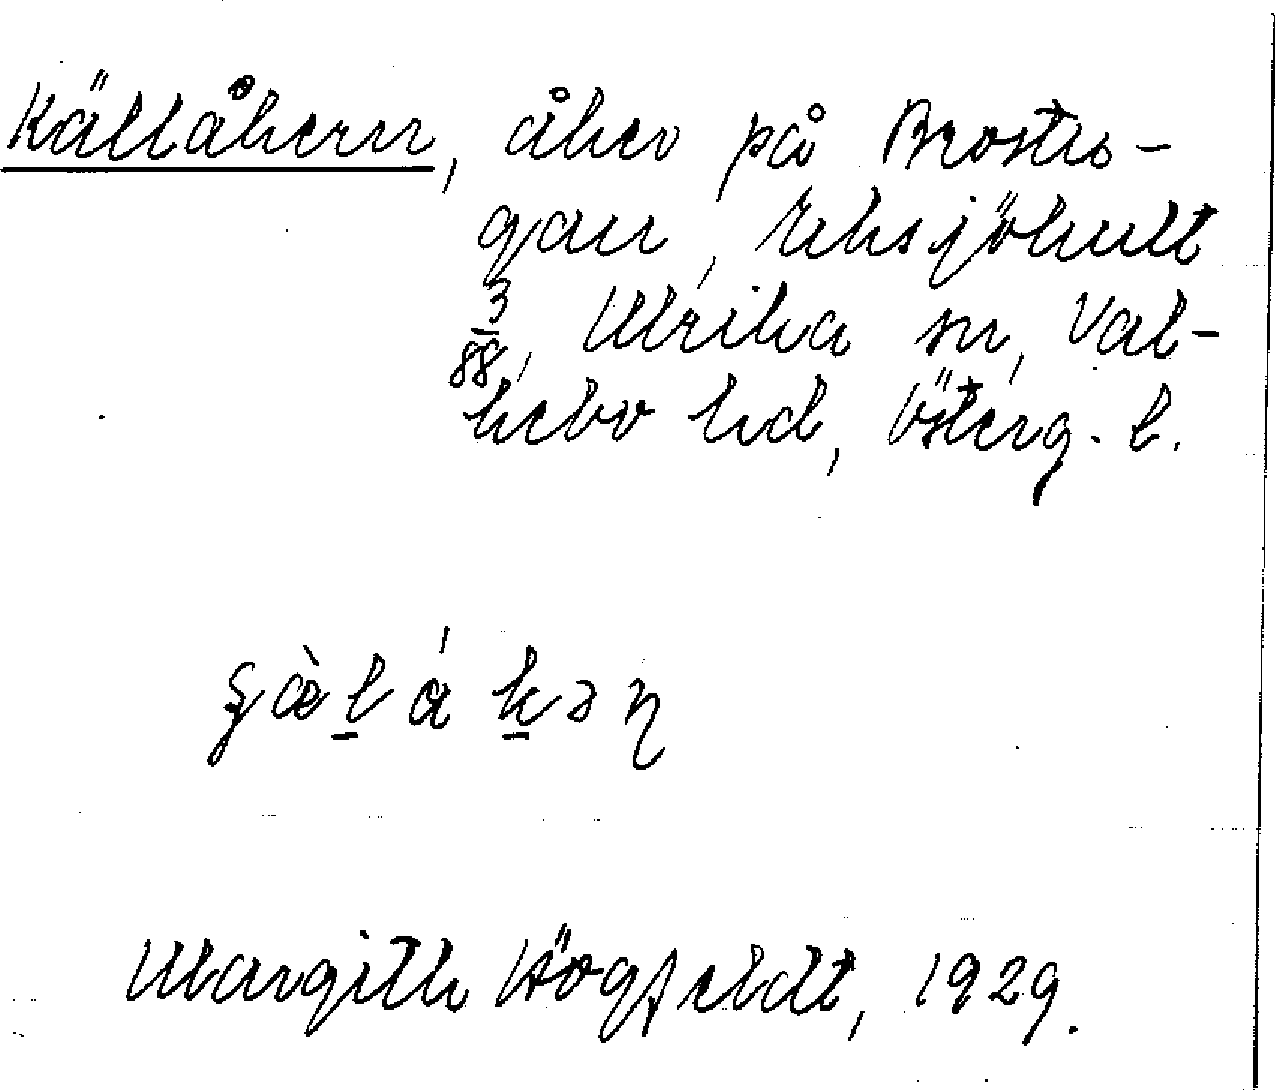 Källåkern, åker på Brostu-
gan, Eksjöhult
3/88, Ulrika sn, Val-
kebo hd, Österg. l.
ʂæ̀lákəɳ
Margith Högfeldt, 1929.